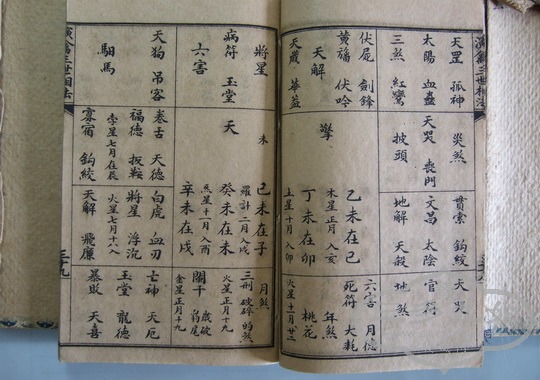 演禽三世相法
天罡 孤神
太陽 血蠱
三煞 紅鸞
伏屍 劍鋒
黃旛 伏吟
天解
天歲 華蓋
災煞
天哭 喪門
披頭
擎
貫索 鈎絞
文昌 太陰
地解 天殺
乙未在巳
木星正月入亥
丁未在卯
土星十月入卯
天哭
官符
地煞
六害 月德
死符 大耗
年煞
桃花
火星十一月廿二
將星
病符 玉堂
六害
天狗 吊客
馹馬
未
天
卷舌 天德
福德 扳鞍
孛星七月在辰
寡宿 鈎絞
己未在子
羅計二月入戌
癸未在未
炁星十一月入酉
辛未在戌
白虎 血刃
將星 浮沉
火星七月十六入
天解 飛廉
月煞
三刑 破碎 的煞
火星正月十九
關干
金星正月十九
亡神 天厄
玉堂 龍德
暴敗 天喜
演禽三世相法
三十九